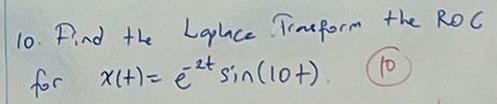 10. Find the Laplace Transform the ROC
for x(t) = e^-2t sin(10t). 10